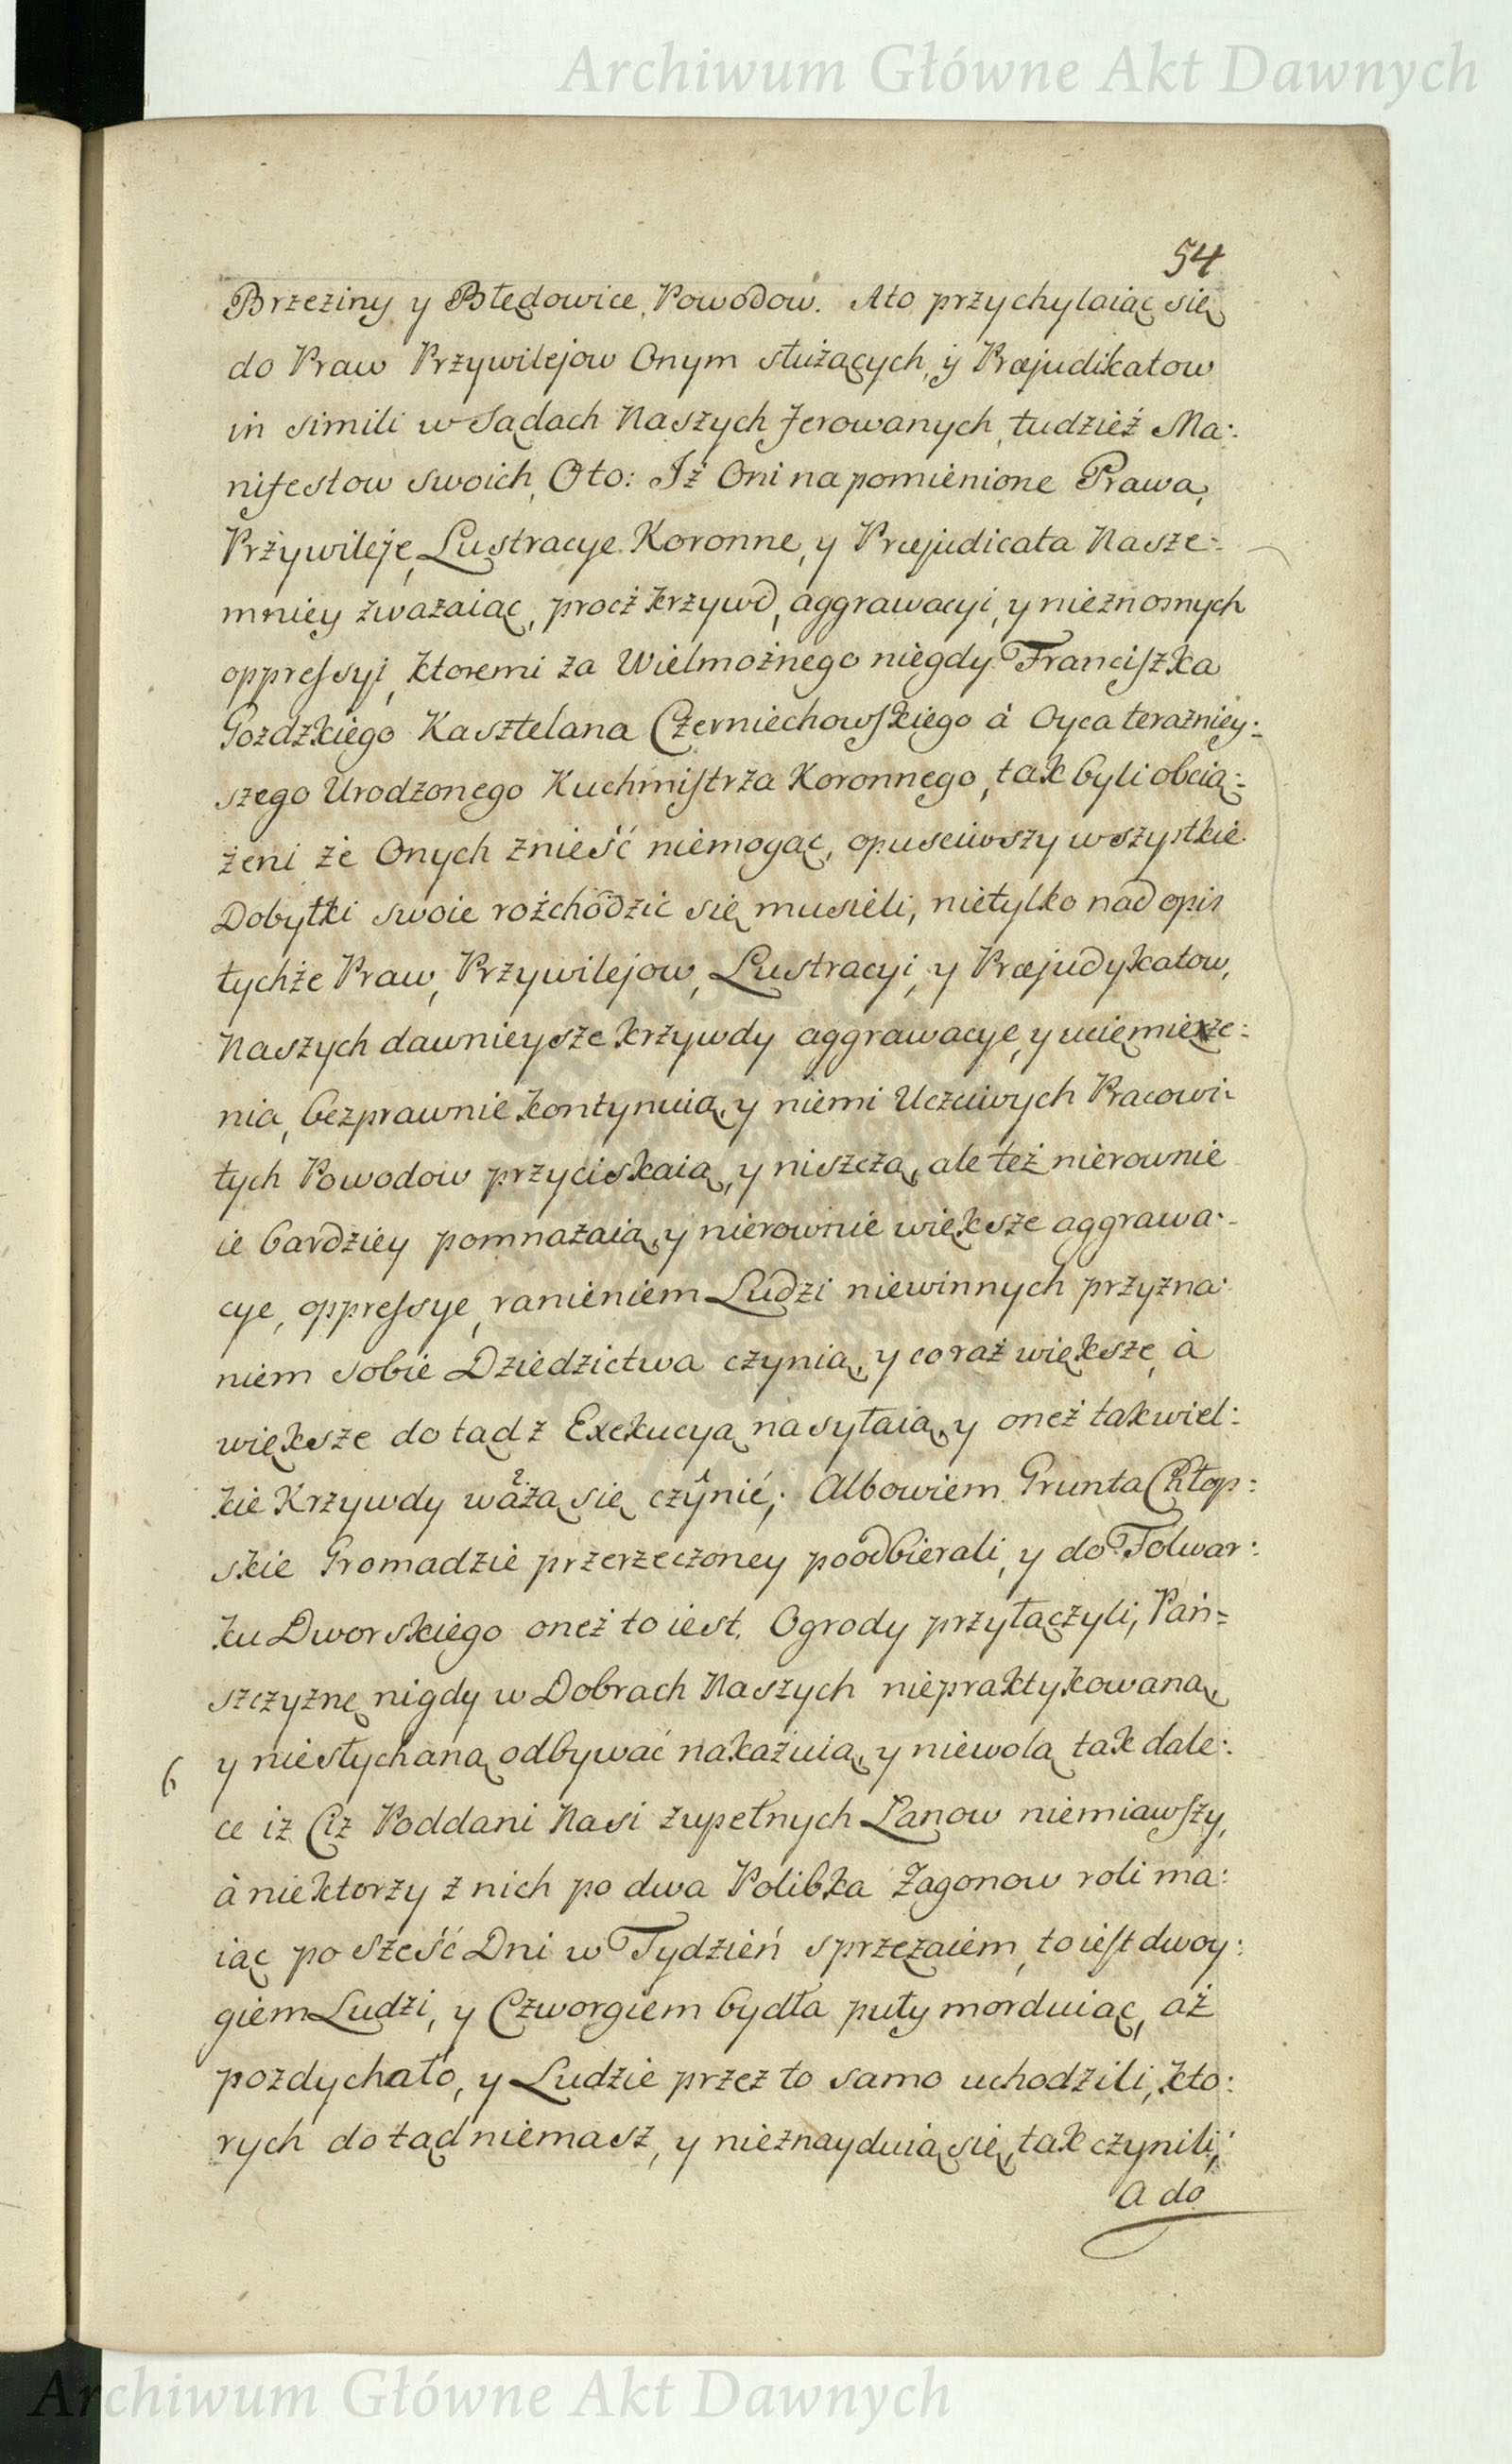 Archiwum Główne Akt Dawnych
54
Brzeziny y Błędowice, Powodow. Ato przychylaiąc się
do Praw Przywilejow Onym służących, y Præjudikatow
in simili w Sądach Naszych ferowanych, tudzież Ma:
nifestow swoich, Oto: Iż Oni na pomienione Prawa,
Przywileje, Lustracye Koronne, y Præjudicata Nasze
mniey zważaiąc, procz krzywd, aggrawacyi, y nieznosnych
oppressyi, ktoremi za Wielmożnego niegdy Franciszka
Gozdzkiego Kasztelana Czerniechowskiego à Oyca teraźniey:
szego Urodzonego Kuchmistrza Koronnego, tak byli obcią:
żeni że Onych znieść niemogąc, opusciwszy wszystkie
Dobytki swoie rozchodzic się musieli, nietylko nad opis
tychże Praw, Przywilejow, Lustracyi, y Præjudykatow,
Naszych dawnieysze krzywdy aggrawacye, y uciemięże:
nia, bezprawnie kontynuią, y niemi Uczciwych Pracowi:
tych Powodow przyciskaią, y niszczą, ale też nierownie
ie bardziey pomnażaią, y nierownie większe aggrawa:
cye, oppressye, ranieniem Ludzi niewinnych przyzna:
niem sobie Dziedzictwa czynią, y coraz większe, à
większe do tąd z Exekucyą nasyłaią, y oneż tak wiel:
kie Krzywdy ważą się czynić; Albowiem Grunta Chłop:
skie Gromadzie przerzeczoney poodbierali, y do Folwar:
ku Dworskiego oneż to iest. Ogrody przyłączyli, Pań=
szczyznę nigdy w Dobrach Naszych niepraktykowaną,
y niesłychaną odbywać nakazuią, y niewolą tak dale:
ce iż Ciż Poddani Nasi zupełnych Łanow niemiawszy,
à niektorzy z nich po dwa Polibka Zagonow roli ma:
iąc po sześć Dni w Tydzień sprzężaiem, to iest dwoy:
giem Ludzi, y Czworgiem bydła puty morduiąc, aż
pozdychało, y Ludzie przez to samo uchodzili, kto:
rych do tąd niemasz, y nieznayduią się, tak czynili,
A do
Archiwum Główne Akt Dawnych